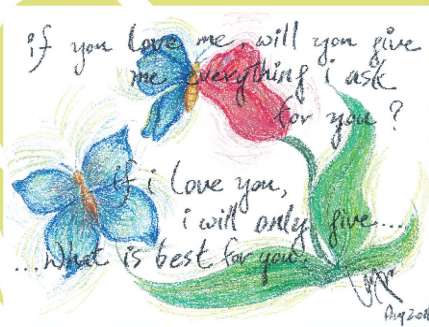 if you love me, will you give
me everything i ask
for you ?
if i love you,
i will only give...
...What is best for you.